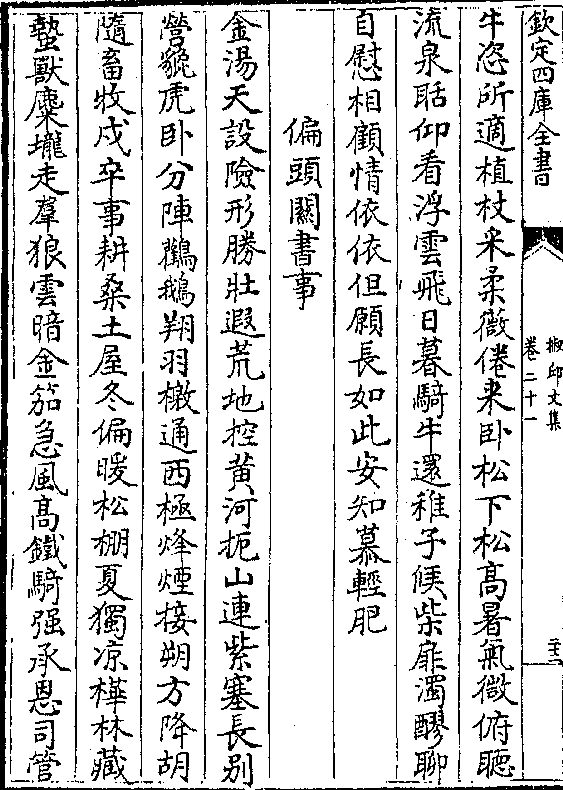 欽定四庫全書
椒邱文集
卷二十一
牛恣所適植杖采柔薇倦来卧松下松髙暑氣微俯聽
流泉聒仰看浮雲飛日暮騎牛還稚子候柴扉濁醪聊
自慰相顧情依依但願長如此安知慕輕肥
偏頭關書事
金湯天設險形勝壯遐荒地控黄河扼山連紫塞長别
營貔虎卧分陣鸛鵝翔羽檄通西極烽煙接朔方降胡
隨畜牧戍卒事耕桑土屋冬偏暖松棚夏獨凉樺林藏
蟄獸麋壠走羣狼雲暗金笳急風髙鐵騎强承恩司管